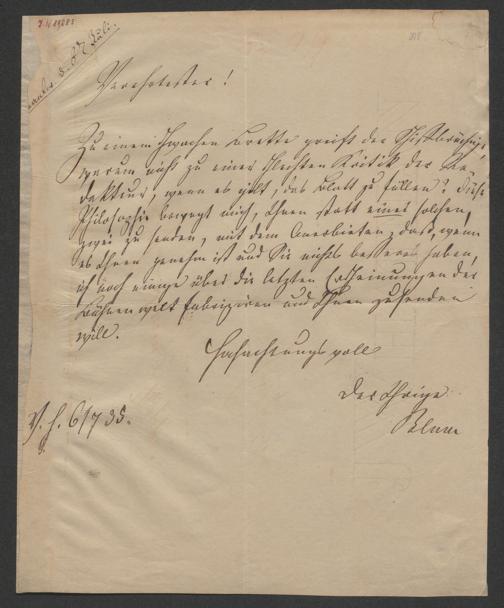 d. 6/7 Juli.
Verehrtester!
Zu einem schwachen Brette greift der Schiffbrüchige,
warum nicht zu einer schlechten Kritik der Re-
dakteur, wenn es gilt, das Blatt zu füllen? Diese
Philosophie bewegt mich, Ihnen statt einer solchen,
zwei zu senden, mit dem Anerbieten, daß, wenn
es Ihnen genehm ist und Sie nichts besseres haben,
ich noch einige über die letzten Erscheinungen der
Bühnenwelt fabriziren und Ihnen zusenden
will.
Hochachtungsvoll
Der Ihrige
Blum
V. H. 6/7 35.